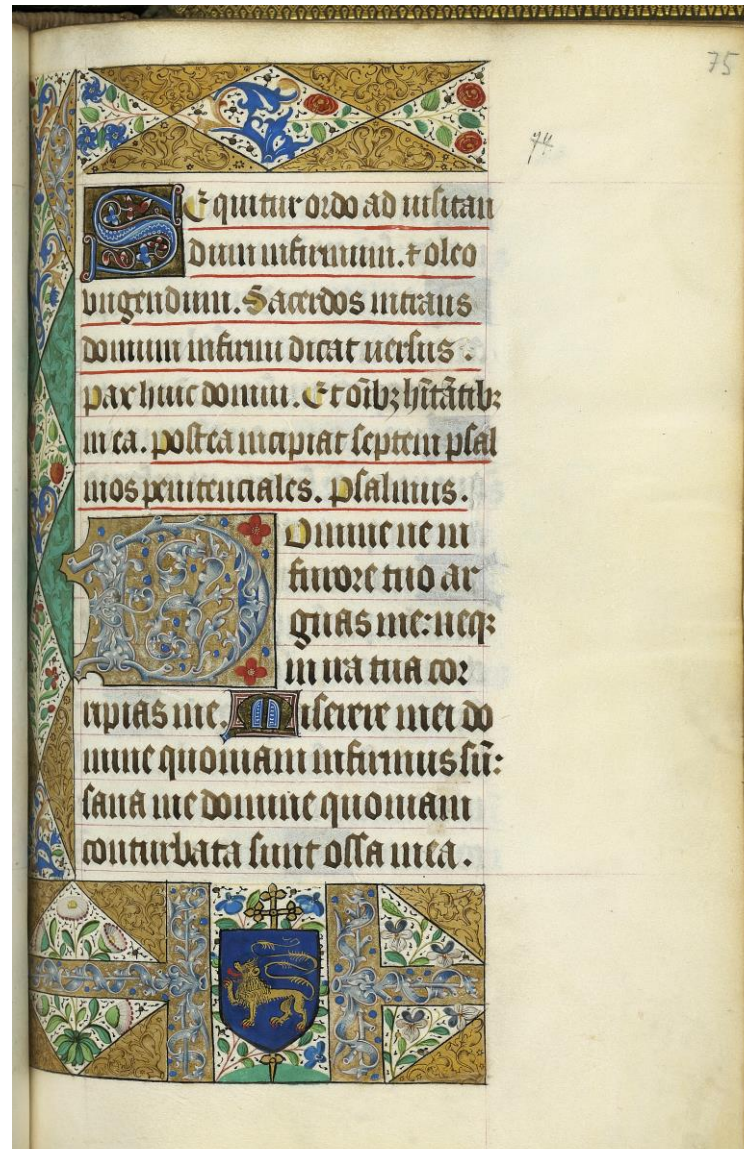 75
74
SEquitur ordo ad uisitan
dum infirmum. ⁊ oleo
vngendum. Sacerdos intrans
domum infirmi dicat uersus.
pax huic domui. Et oĩbꝫ hĩtãtibꝫ
in ea. postea incipiat septem psal
mos penitenciales. Psalmus.
Domine ne in
furore tuo ar
guas me: neqꝫ
in ira tua cor
ripias me. Miserere mei do
mine quoniam infirmus sũ:
sana me domine quoniam
conturbata sunt ossa mea.